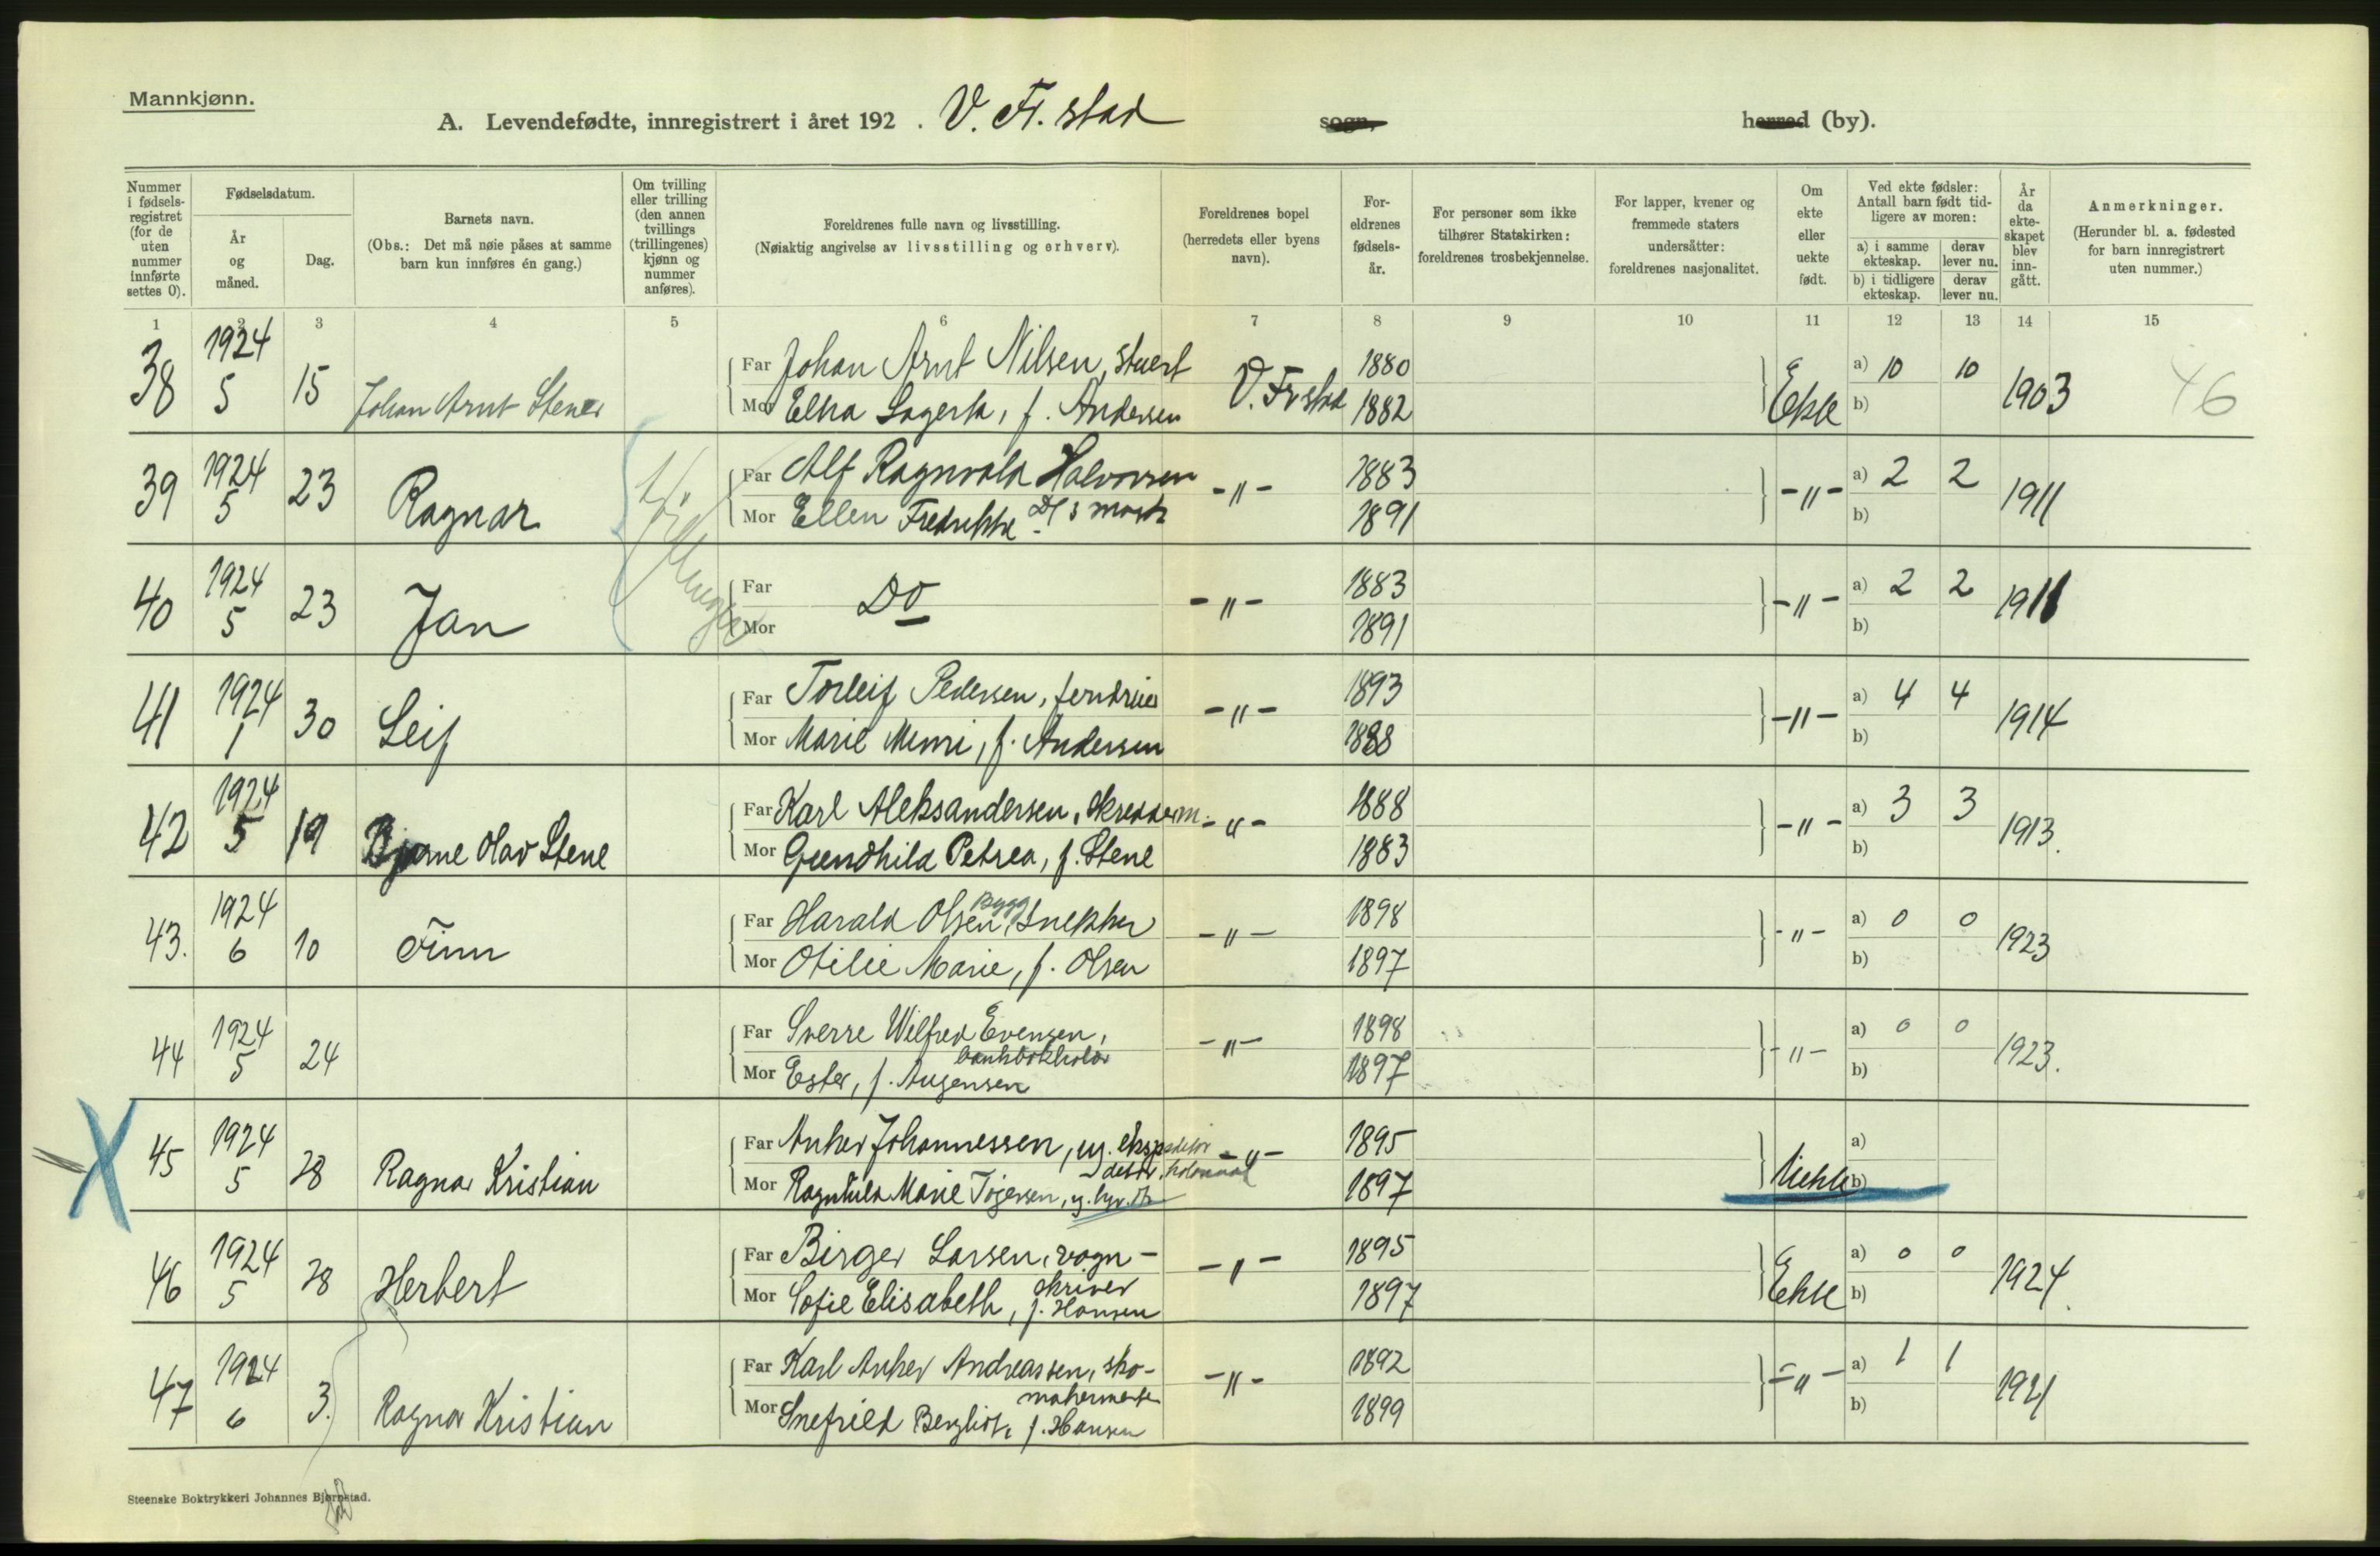 Mannkjønn.
A. Levendefødte, innregistrert i året 192 . V. Fr. stad sogn, herred (by).
Nummer i fødsels-registret (for de uten nummer innførte settes 0).
Fødselsdatum.
År og måned.
Dag.
Barnets navn.
(Obs.: Det må nøie påses at samme barn kun innføres én gang.)
Om tvilling eller trilling (den annen tvillings (trillingenes) kjønn og nummer anføres).
Foreldrenes fulle navn og livsstilling.
(Nøiaktig angivelse av livsstilling og erhverv).
Foreldrenes bopel (herredets eller byens navn).
For-eldrenes fødsels-år.
For personer som ikke tilhører Statskirken: foreldrenes trosbekjennelse.
For lapper, kvener og fremmede staters undersåtter: foreldrenes nasjonalitet.
Om ekte eller uekte født.
Ved ekte fødsler: Antall barn født tid-ligere av moren:
a) i samme ekteskap. derav lever nu.
b) i tidligere ekteskap. derav lever nu.
År da ekte-skapet blev inn-gått.
Anmerkninger.
(Herunder bl. a. fødested for barn innregistrert uten nummer.)
1 2 3 4 5 6 7 8 9 10 11 12 13 14 15
38 1924 5 15 Johan Arnt Stener
Far Johan Arnt Nilsen, stuert V. Fr stad 1880 Ekte a) 10 10 1903 46
Mor Elna Lagerta, f. Andersen 1882 b)
39 1924 5 23 Ragnar tvillinger
Far Alf Ragnvald Halvorsen -"- 1883 -"- a) 2 2 1911
Mor Ellen Fredrikke 1891 b)
40 1924 5 23 Jan
Far Do -"- 1883 -"- a) 2 2 1911
Mor 1891 b)
41 1924 1 30 Leif
Far Torleif Pedersen, -"- 1893 -"- a) 4 4 1914
Mor Marie f. Andersen 1888 b)
42 1924 5 19 Bjarne Olav Stene
Far Karl Aleksandersen, skredderm. -"- 1888 -"- a) 3 3 1913.
Mor Gundhild Petrea, f. Stene 1883 b)
43. 1924 6 10 Finn
Far Harald Olsen, Bygg Snekker -"- 1898 -"- a) 0 0 1923
Mor Otilie Marie, f. Olsen 1897 b)
44 1924 5 24
Far Sverre Wilfred Evensen, bankbokholder -"- 1898 -"- a) 0 0 1923.
Mor Ester, f. Augensen 1897 b)
X 45 1924 5 28 Ragnar Kristian
Far Anker Johannessen, ug. ekspeditør -"- 1895 Uekte a)
Mor Ragnhild Marie 1897 b)
46 1924 5 28 Herbert
Far Birger Larsen, vogn- skriver -"- 1895 Ekte a) 0 0 1924.
Mor Sofie Elisabeth, f. Hansen 1897 b)
47 1924 6 3. Ragnar Kristian
Far Karl Anker Andreassen, sko- makermester -"- 1892 -"- a) 1 1 1921
Mor Snefrid Bergliot, f. Hansen 1899 b)
Steenske Boktrykkeri Johannes Bjørnstad.